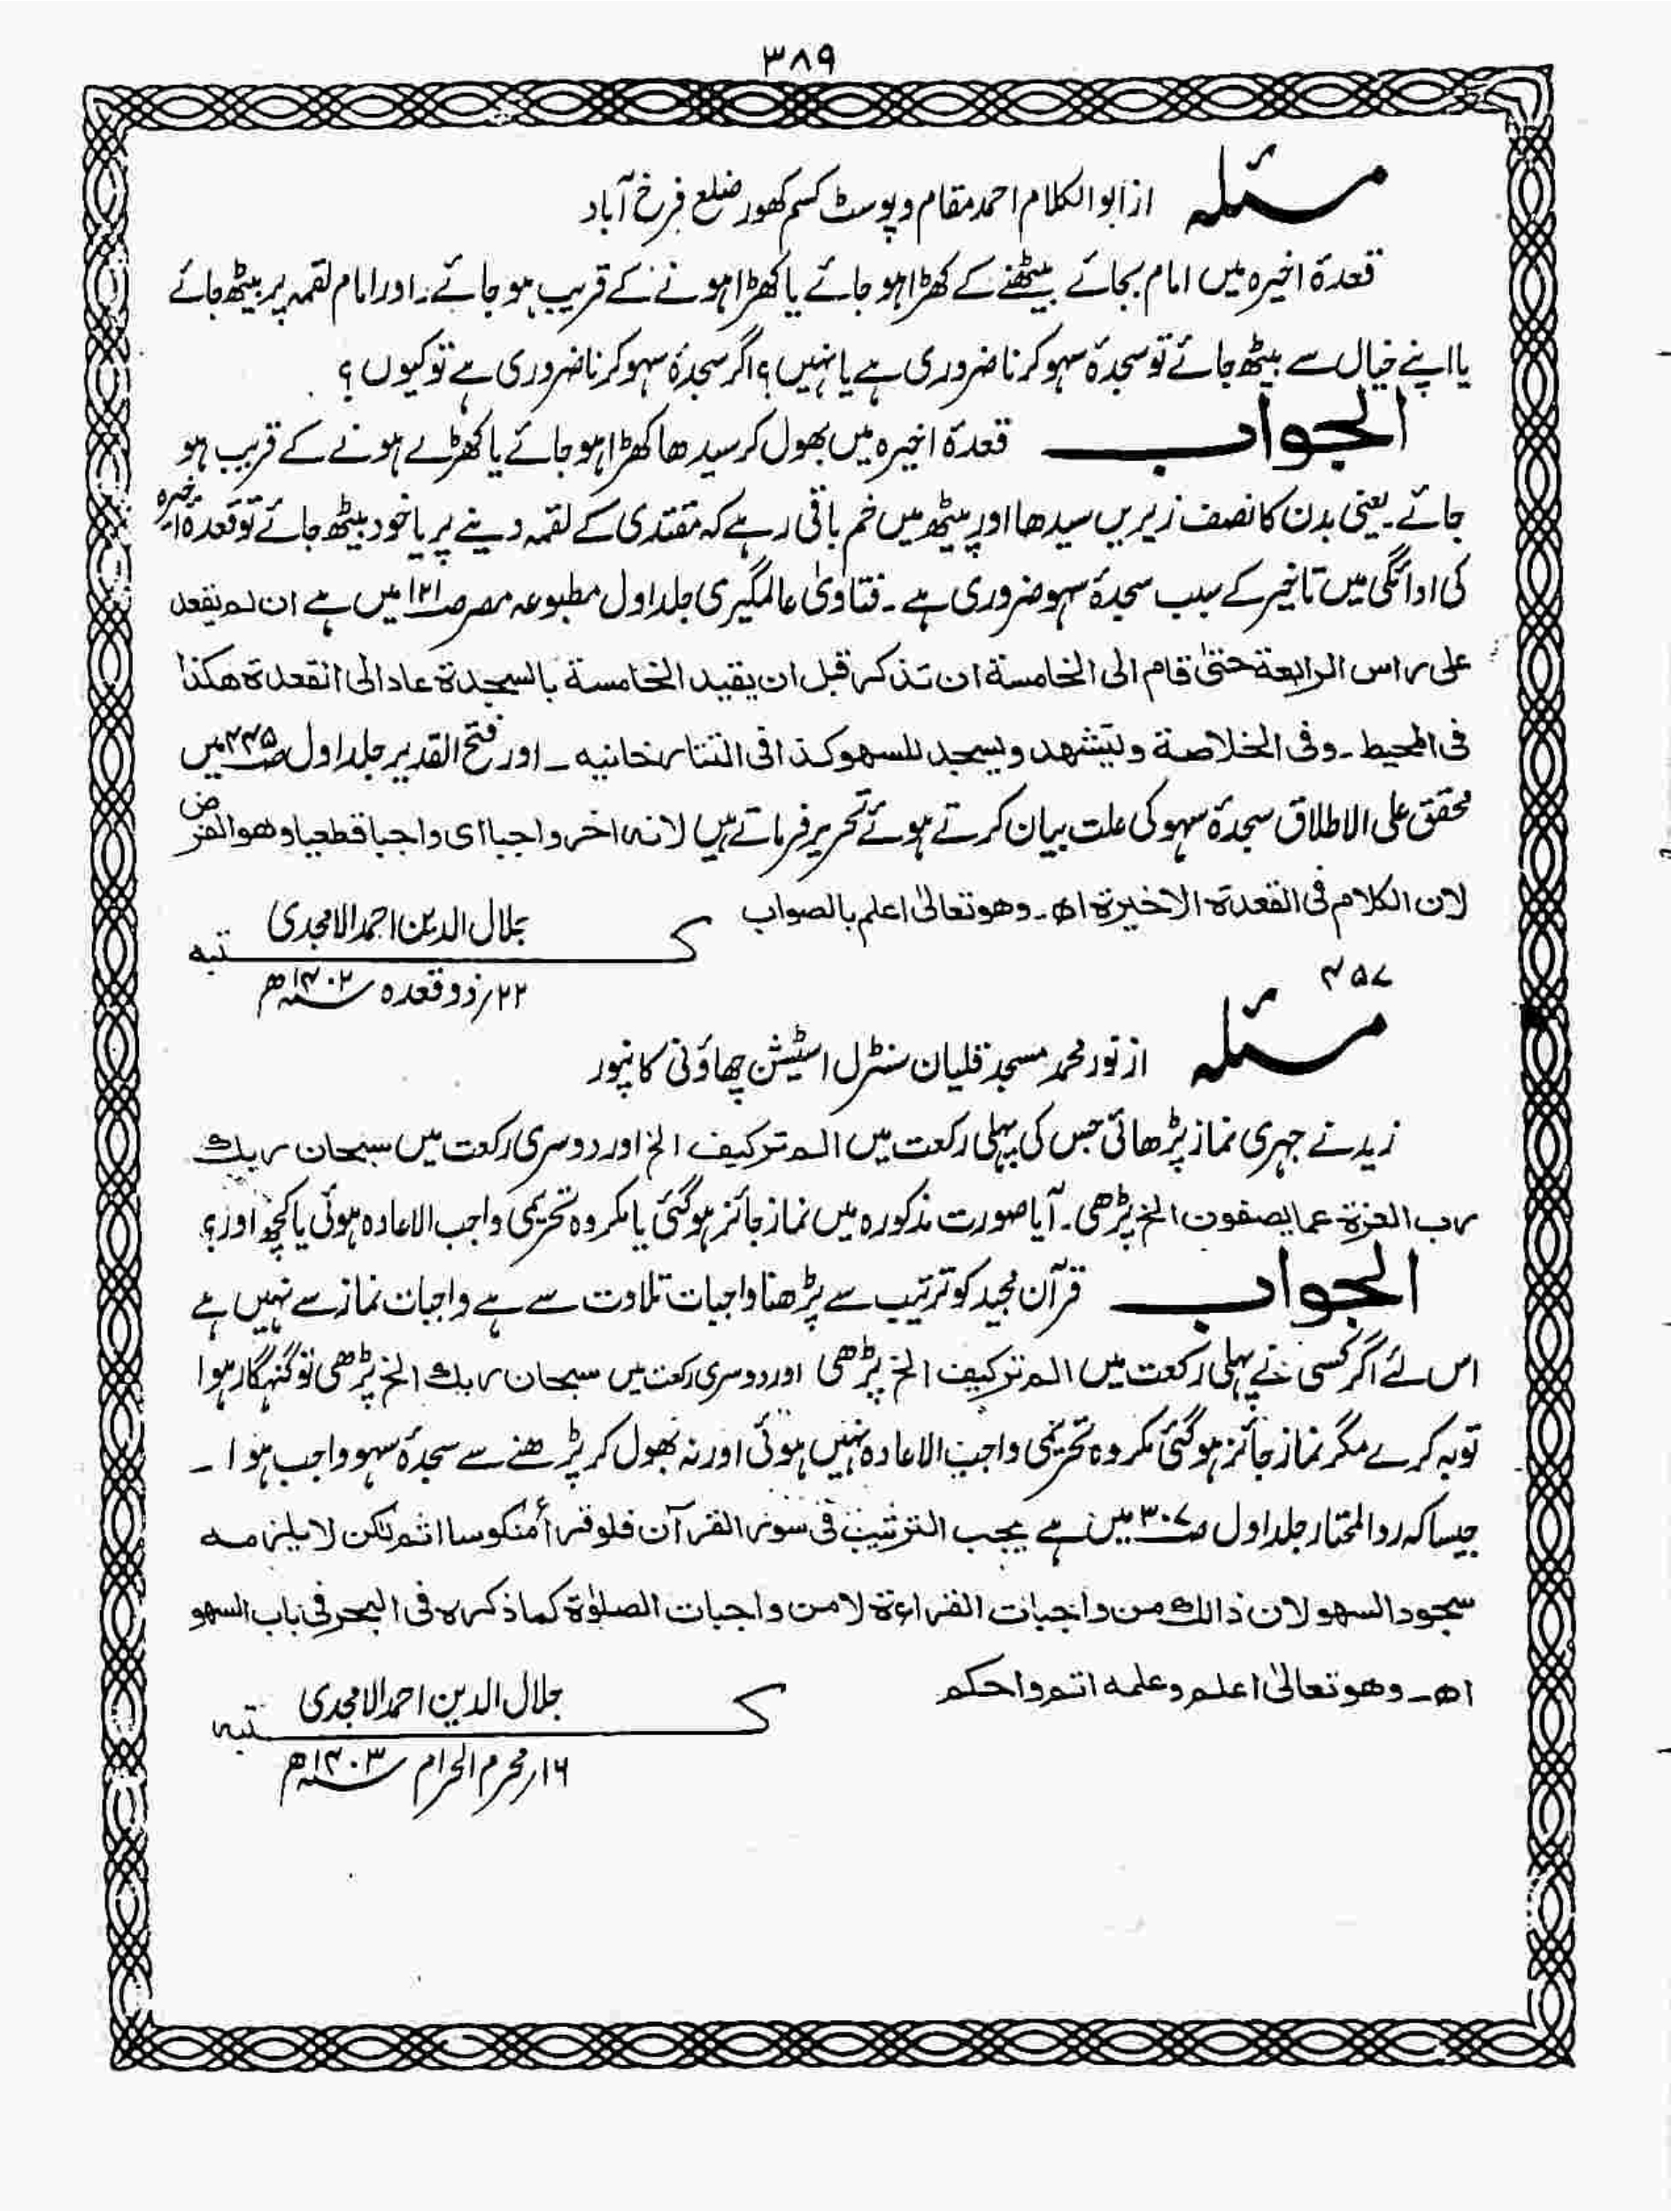 ۳۸۹
مسئلہ از ابوالکلام احمد مقام و پوسٹ کسم کھور ضلع فرخ آباد
قعدۂ اخیرہ میں امام بجائے بیٹھنے کے کھڑا ہو جائے یا کھڑا ہونے کے قریب ہو جائے۔ اور امام لقمہ پر بیٹھ جائے
یا اپنے خیال سے بیٹھ جائے تو سجدۂ سہو کرنا ضروری ہے یا نہیں؟ اگر سجدۂ سہو کرنا ضروری ہے تو کیوں؟
الجواب قعدۂ اخیرہ میں بھول کر سیدھا کھڑا ہو جائے یا کھڑے ہونے کے قریب ہو
جائے۔ یعنی بدن کا نصف زیریں سیدھا اور پیٹھ میں خم باقی رہے کہ مقتدی کے لقمہ دینے پر یا خود بیٹھ جائے تو قعدۂ اخیرہ
کی ادائگی میں تاخیر کے سبب سجدۂ سہو ضروری ہے۔ فتاویٰ عالمگیری جلد اول مطبوعہ مصر ص۱۲۱ میں ہے ان لم یقعد
علی راس الرابعة حتیٰ قام الی الخامسة ان تذکر قبل ان یقید الخامسة بالسجدة عاد الی القعدة ھکذا
فی المحیط۔ وفی الخلاصة ویتشھد ویسجد للسھو کذا فی التتارخانیہ۔ اور فتح القدیر جلد اول ص۴۴۵ میں
محقق علی الاطلاق سجدۂ سہو کی علت بیان کرتے ہوئے تحریر فرماتے ہیں لانہ اخر واجبا ای واجبا قطعیا وھو الفرض
لان الکلام فی القعدة الاخیرة اھ۔ وھو تعالیٰ اعلم بالصواب
جلال الدین احمد الامجدی
کتبہ
۲۲؍ ذو قعدہ ۱۴۰۲ھ
۴۵۷
مسئلہ از نور محمد مسجد قلیان سنٹرل اسٹیشن چھاؤنی کانپور
زید نے جہری نماز پڑھائی جس کی پہلی رکعت میں الم ترکیف الخ اور دوسری رکعت میں سبحان ربك
رب العزة عما یصفون الخ پڑھی۔ آیا صورت مذکورہ میں نماز جائز ہو گئی یا مکروہ تحریمی واجب الاعادہ ہوئی یا کچھ اور؟
الجواب قرآن مجید کو ترتیب سے پڑھنا واجبات تلاوت سے ہے واجبات نماز سے نہیں ہے
اس لئے اگر کسی نے پہلی رکعت میں الم ترکیف الخ پڑھی اور دوسری رکعت میں سبحان ربك الخ پڑھی تو گنہگار ہوا
توبہ کرے مگر نماز جائز ہو گئی مکروہ تحریمی واجب الاعادہ نہیں ہوئی اور نہ بھول کر پڑھنے سے سجدۂ سہو واجب ہوا۔
جیسا کہ رد المحتار جلد اول ص۳۰۷ میں ہے یجب الترتیب فی سور القرآن فلو قرأ منکوسا اثم لکن لا یلزمہ
سجود السھو لان ذالك من واجبات القراءة لا من واجبات الصلوٰة کما ذکرہ فی البحر فی باب السھو
اھ۔ وھو تعالیٰ اعلم وعلمہ اتم واحکم
جلال الدین احمد الامجدی
کتبہ
۱۶؍ محرم الحرام ۱۴۰۳ھ